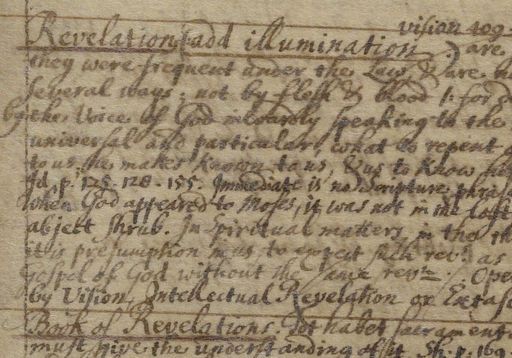 vision 409.
Revelation, (add illumination.) are
they were frequent under the Law, & are
several ways; not by flesh & blood
by the Voice of God inwardly speaking to the
universal and particular, what to repent
to us, he makes known to us, & us to know
Id. p. 125. 128. 155. Immediate is no Scripture phrase
when God appeared to Moses, it was not in the loft
abject shrub. In Spiritual matters, in the
it is presumption in us, to expect such rev: as
Gospel of God without the same
by Vision, Intellectual Revelation or Extas
Book of Revelations. Tot habet sacrament
must give the understanding of it. p. 169